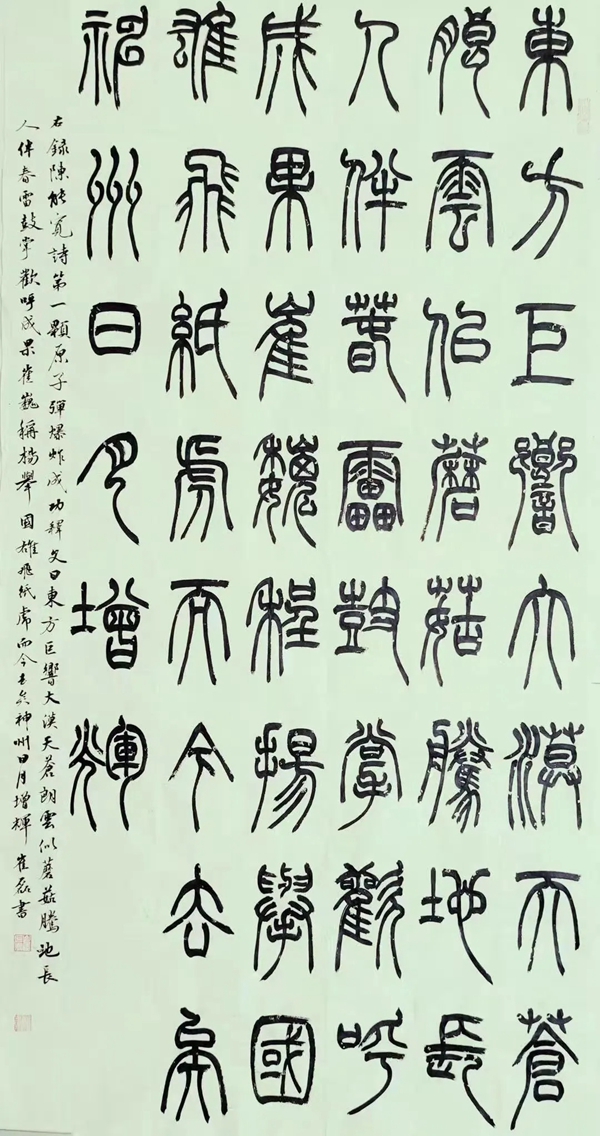 東方巨響大漠天蒼
朗雲似蘑菇騰地長
人伴春雷鼓掌歡呼
成果崔巍稱揚舉國
雄飛紙虎而今去矣
神州日月增輝
右錄陳能寬詩第一顆原子彈爆炸成功釋文曰東方巨響大漠天蒼朗雲似蘑菇騰地長
人伴春雷鼓掌歡呼成果崔巍稱揚舉國雄飛紙虎而今去矣神州日月增輝 崔磊書